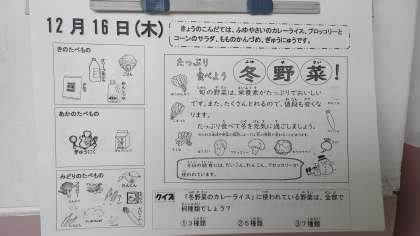 12月16日(木)
きょうのこんだては、ふゆやさいのカレーライス、ブロッコリーと
コーンのサラダ、もものかんづめ、ぎゅうにゅうです。
きのたべもの
ごはん
あかのたべもの
ぎゅうにく
みどりのたべもの
たっぷり
食べよう
冬野菜!
旬の野菜は、栄養素がたっぷりでおいしい
です。また、たくさんとれるので、値段も安くな
ります。
たっぷり食べて冬を元気に過ごしましょう。
今日の給食には、だいこん、れんこん、ブロッコリーが
使われています。
クイズ
「冬野菜のカレーライス」に使われている野菜は、全部で
何種類でしょう?
①3種類 ②5種類 ③7種類